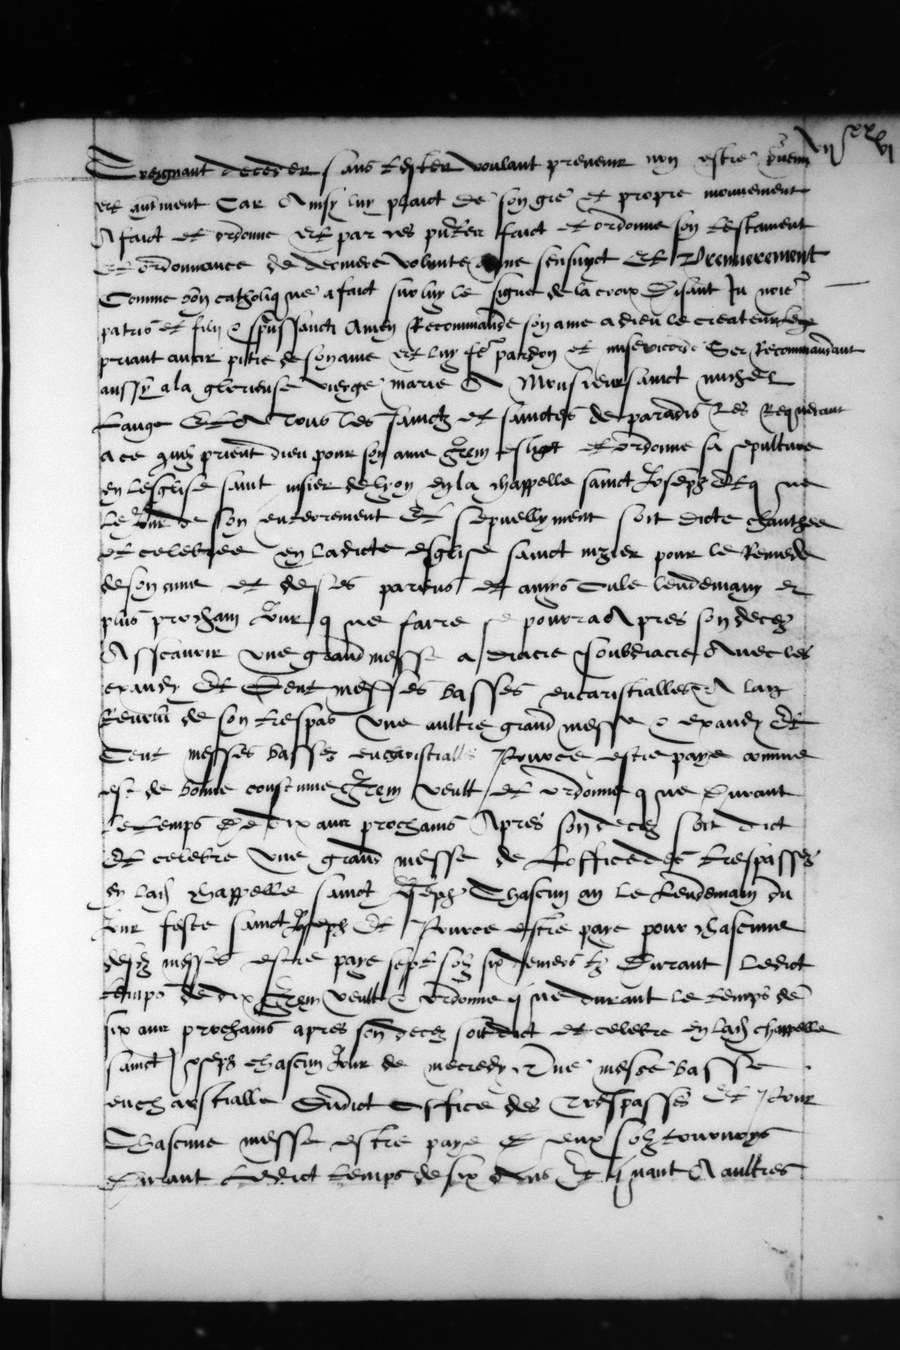 vii xx vi
Creignant decedder sans tester voulant prevenir non estre prevenu
et aultrement Car Ainsy luy plaict de son gre et propre mouvement
A faict et ordonne et par ces pntes faict et ordonne son testament
et ordonnance de derniere volunte que sensuyct Et Premierement
Comme bon catholique a faict sur luy le signe de la croix Disant In noie
patris et filii & spussancti Amen Recommande son ame a dieu le createur
priant avoir pitie de son ame et luy fe pardon et misericorde Se Recommandant
aussy a la glorieuse vierge marie A Monsieur sanct michel
Lange Et A tous les sanctz et sanctes de paradis Les Requerant
a ce quilz prient dieu pour son ame Item eslict et ordonne sa sepulture
en lesglise sainct nisier de lyon en la chappelle sanct Joseph Et que
le Jour de son enterrement et sepvellyment soit dicte chantee
et celebree en ladicte esglise sanct nizier pour le Remede
de son ame et de ses parens et amys Ou le lendemain et
plus prochain Jour que faire se pourra Apres son decez
Asscavoir une grand messe a diacre soubdiacre Avec les
exaudi Et Cent messes basses eucaristialles A lan
Revolu de son trespas Une aultre grand messe & exaudi et
Cent messes basses eucharistialles pource estre paye comme
est de bonne coustume Item veult et ordonne que Durant
le temps de dix ans prochains Apres son decez soit dict
et celebre Une grand messe de Lofficedes trespassez
en lad chappelle sanct Joseph Chascun an le lendemain du
Jour feste sanct Joseph Et pource estre paye pour chascune
desd messes estre paye sept solz six deniers tz Durant Ledict
temps de dix Item veult & ordonne que durant le temps de
six ans prochains apres son decez soit dict et celebre en lad chappelle
sanct Joseph chascun Jour de mecredy Une messe basse
eucharstialle Dudict Office des Trespasses et pour
Chascune messe estre paye deux solz tournoys
Durant Ledict temps de six Ans Et quant A aultres